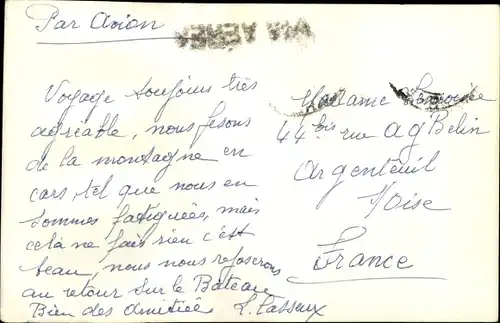 Par Avion
VIA AEREA
Voyage toujours très
agréable, nous fesons
de la montagne en
cars, tel que nous en
sommes fatiguées, mais
cela ne fais rien c'est
beau, nous nous reposerons
au retour sur le Bateau
Bien des Amitiés L. Lasseux
Madame
44 bis rue Ag Belin
Argenteuil
S/Oise
France